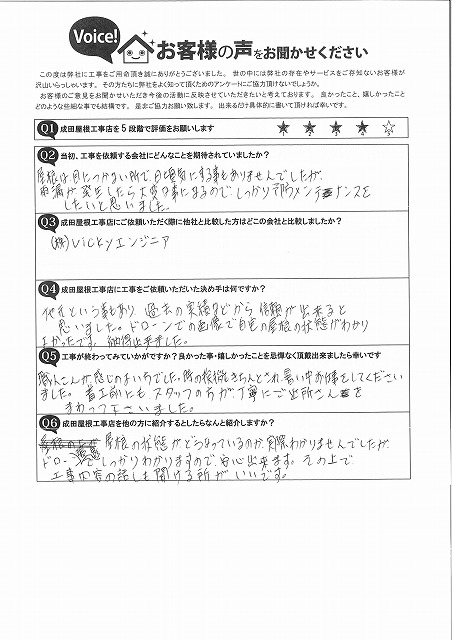 Voice!
お客様の声をお聞かせください
この度は弊社に工事をご用命頂き誠にありがとうございました。 世の中には弊社の存在やサービスをご存知ないお客様が
沢山いらっしゃいます。 その方たちに弊社をよく知って頂くためのアンケートにご協力頂けないでしょうか。
お客様のご意見をお聞かせいただき今後の活動に反映させていただきたいと考えております。 良かったこと、嬉しかったこと
どのような些細な事でも結構です。 是非ご協力お願い致します。 出来るだけ具体的に書いて頂ければ幸いです。
Q1 成田屋根工事店を5段階で評価をお願いします
1 2 3 4 5
Q2 当初、工事を依頼する会社にどんなことを期待されていましたか?
屋根は目につかない所で、日々気にする事もありませんでしたが、
雨漏が発生したら大変な事になるので、しっかり予防メンテナンスを
したいと思いました。
Q3 成田屋根工事店にご依頼いただく際に他社と比較した方はどこの会社と比較しましたか?
(株)Vickyエンジニア
Q4 成田屋根工事店に工事をご依頼いただいた決め手は何ですか?
代元という事もあり、過去の実績などから信頼が出来ると
思いました。ドローンでの画像で自宅の屋根の状態がわかり
よかったです。納得出来ました。
Q5 工事が終わってみていかがですか?良かった事・嬉しかったことを忌憚なく頂戴出来ましたら幸いです
職人さんが感じのよい方でした。際の挨拶もきちんとされ、暑い中お仕事をしてください
ました。着工前にも、スタッフの方が丁寧にご近所さんを
まわって下さいました。
Q6 成田屋根工事店を他の方に紹介するとしたらなんと紹介しますか?
屋根の状態がどうなっているのか、実際わかりませんでしたが、
ドローン でしっかりわかりますので、安心出来ます。その上で
工事内容の話しを聞ける所がいいです。